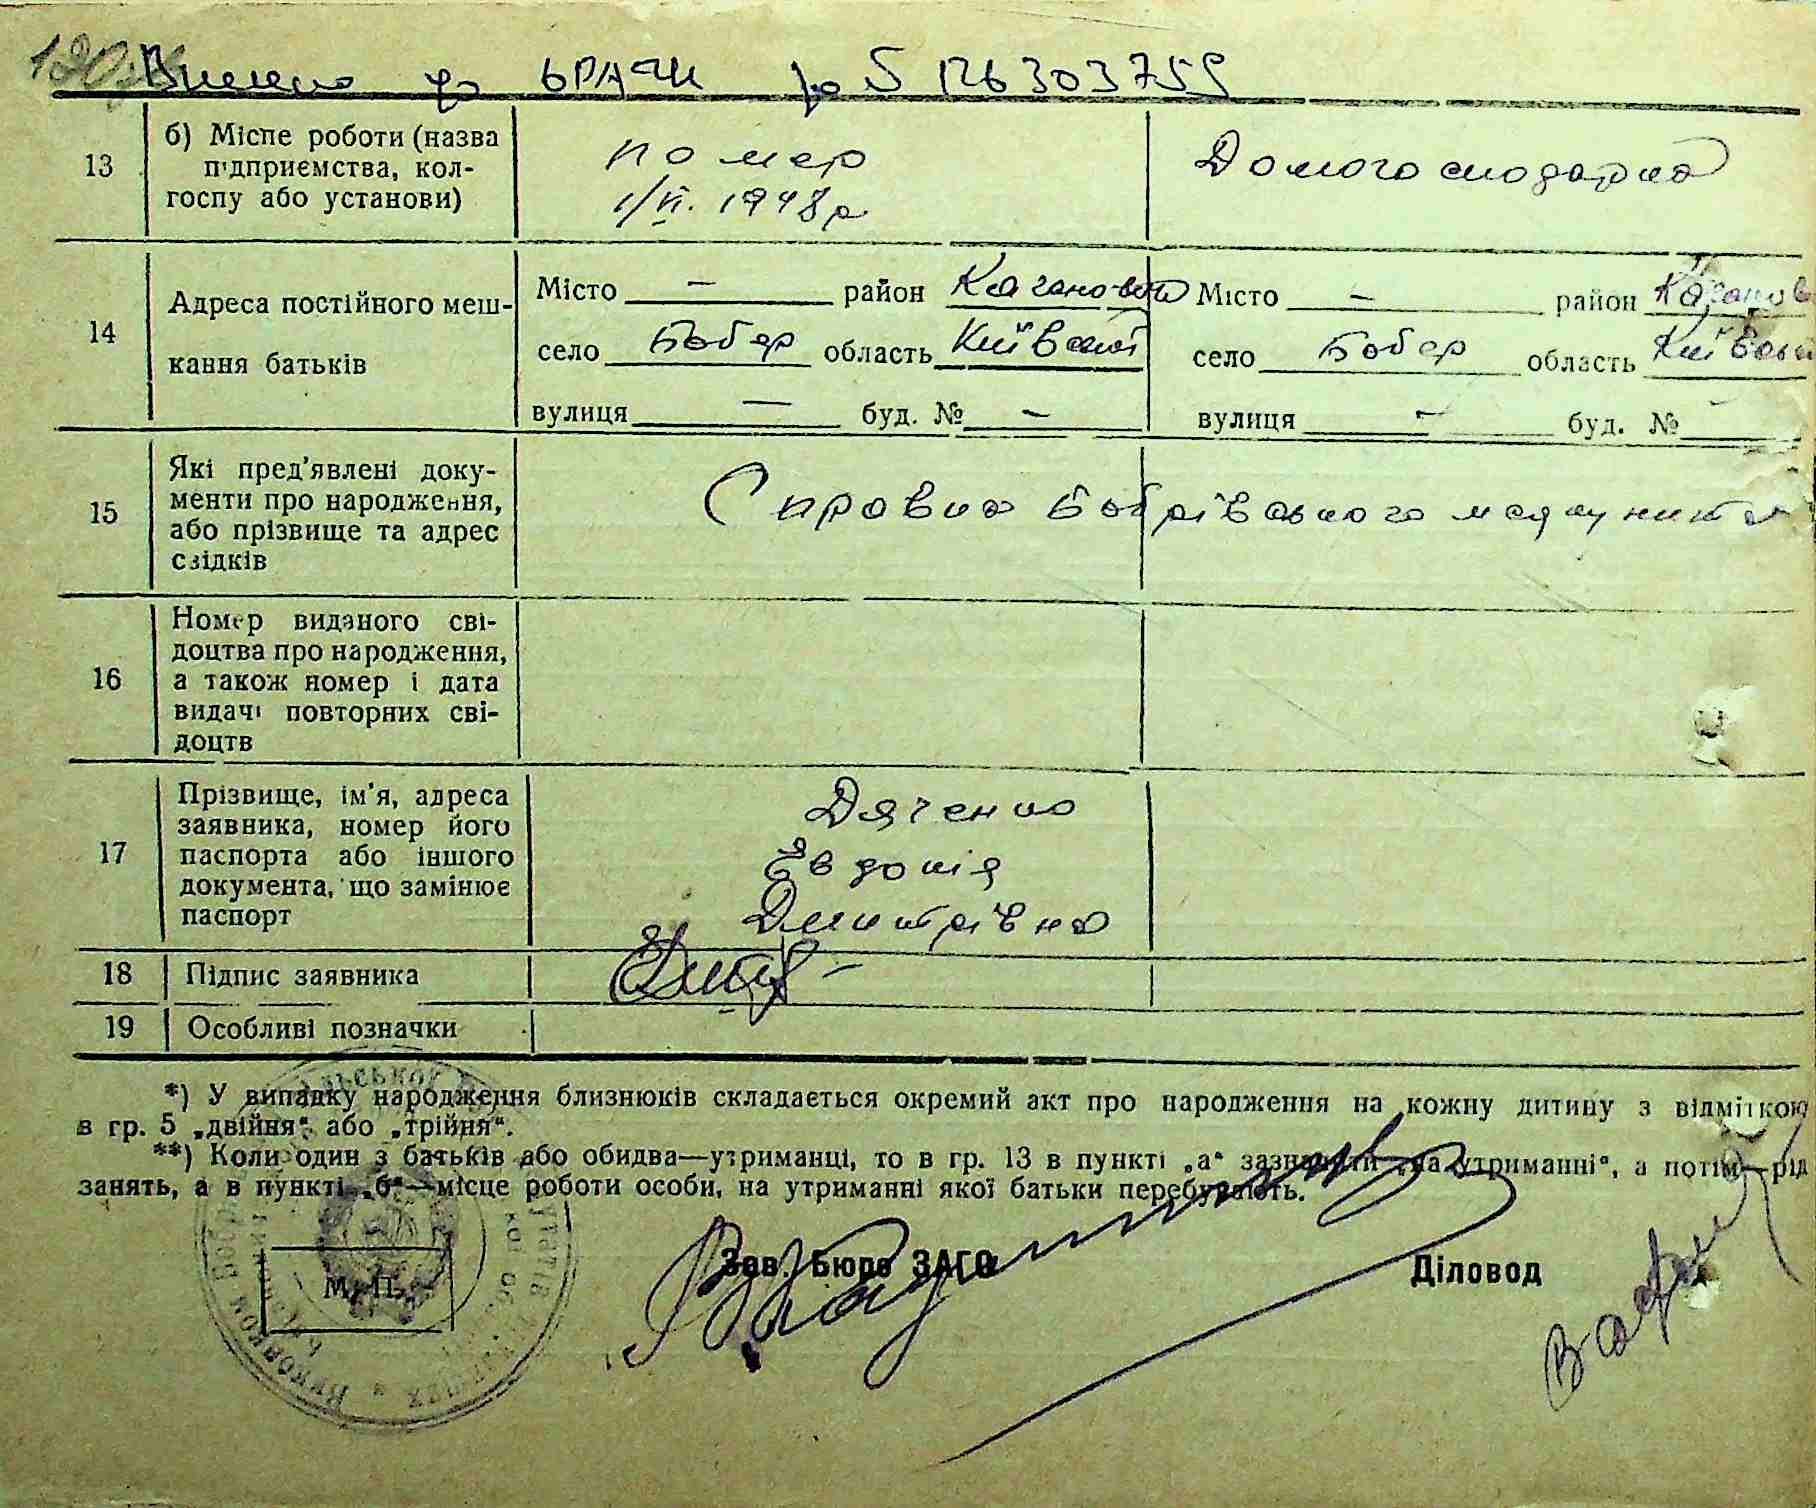 Внесено до ДРАЦСГ за № 126303759
13
б) Місце роботи (назва
підприємства, кол-
госпу або установи)
помер
1/VI. 1948 р
Домогосподарка
14
Адреса постійного меш-
кання батьків
Місто — район Кагановичи
село Бобер область Київської
вулиця — буд. № —
Місто — район Каганови
село Бобер область Київської
вулиця — буд. №
15
Які пред'явлені доку-
менти про народження,
або прізвище та адрес
свідків
Справка Бобрівського медпункта
16
Номер виданого сві-
доцтва про народження,
а також номер і дата
видачі повторних сві-
доцтв
17
Прізвище, ім'я, адреса
заявника, номер його
паспорта або іншого
документа, що замінює
паспорт
Дяченко
Євдокія
Дмитрівна
18
Підпис заявника
19
Особливі позначки
*) У випадку народження близнюків складається окремий акт про народження на кожну дитину з відміткою
в гр. 5 „двійня“ або „трійня“.
**) Коли один з батьків або обидва—утриманці, то в гр. 13 в пункті „а“ зазначити „на утриманні“, а потім—рід
занять, а в пункті „б“—місце роботи особи, на утриманні якої батьки перебувають.
М. П.
Зав. Бюро ЗАГС
Діловод